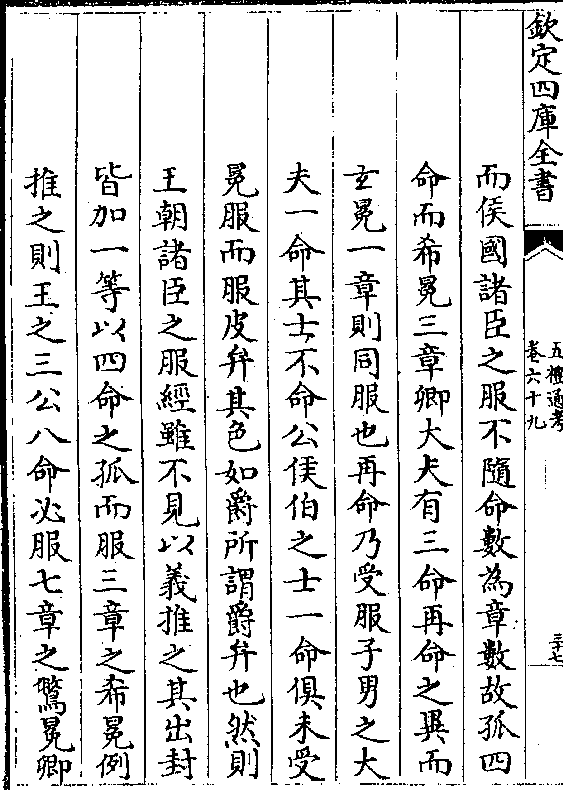 欽定四庫全書
五禮通考
卷六十九
三十七
而侯國諸臣之服不隨命數為章數故孤四
命而希冕三章卿大夫有三命再命之異而
玄冕一章則同服也再命乃受服子男之大
夫一命其士不命公侯伯之士一命俱未受
冕服而服皮弁其色如爵所謂爵弁也然則
王朝諸臣之服經雖不見以義推之其出封
皆加一等以四命之孤而服三章之希冕例
推之則王之三公八命必服七章之鷩冕卿